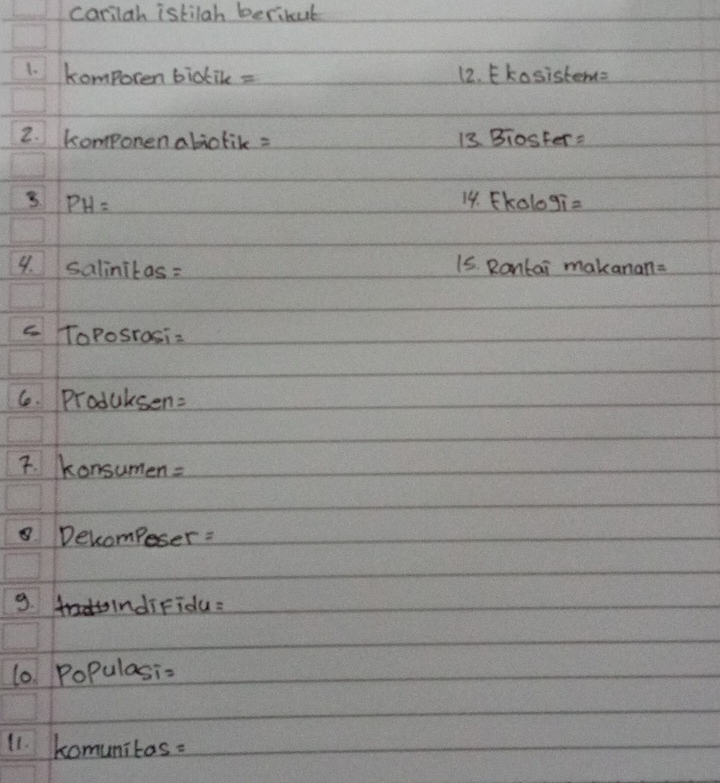 carilah istilah berikut
1. komporen biotik =
12. Ekosistem=
2. komponen abiotik =
13. Biosfer=
3 PH=
14. Ekologi=
4. salinitas =
15. Rantai makanan=
5 Toposrasi=
6. Produksen=
7. konsumen =
8. Dekomposer =
9. Indifidu=
10. Populasi=
11. komunitas =